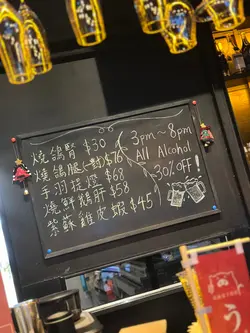 燒鴿腎 $30
燒鴿腿(一對) $76
手羽提燈 $68
燒鮮鵝肝 $58
紫蘇雞皮蝦 $45
3pm~8pm
All Alcohol
30% OFF!
う